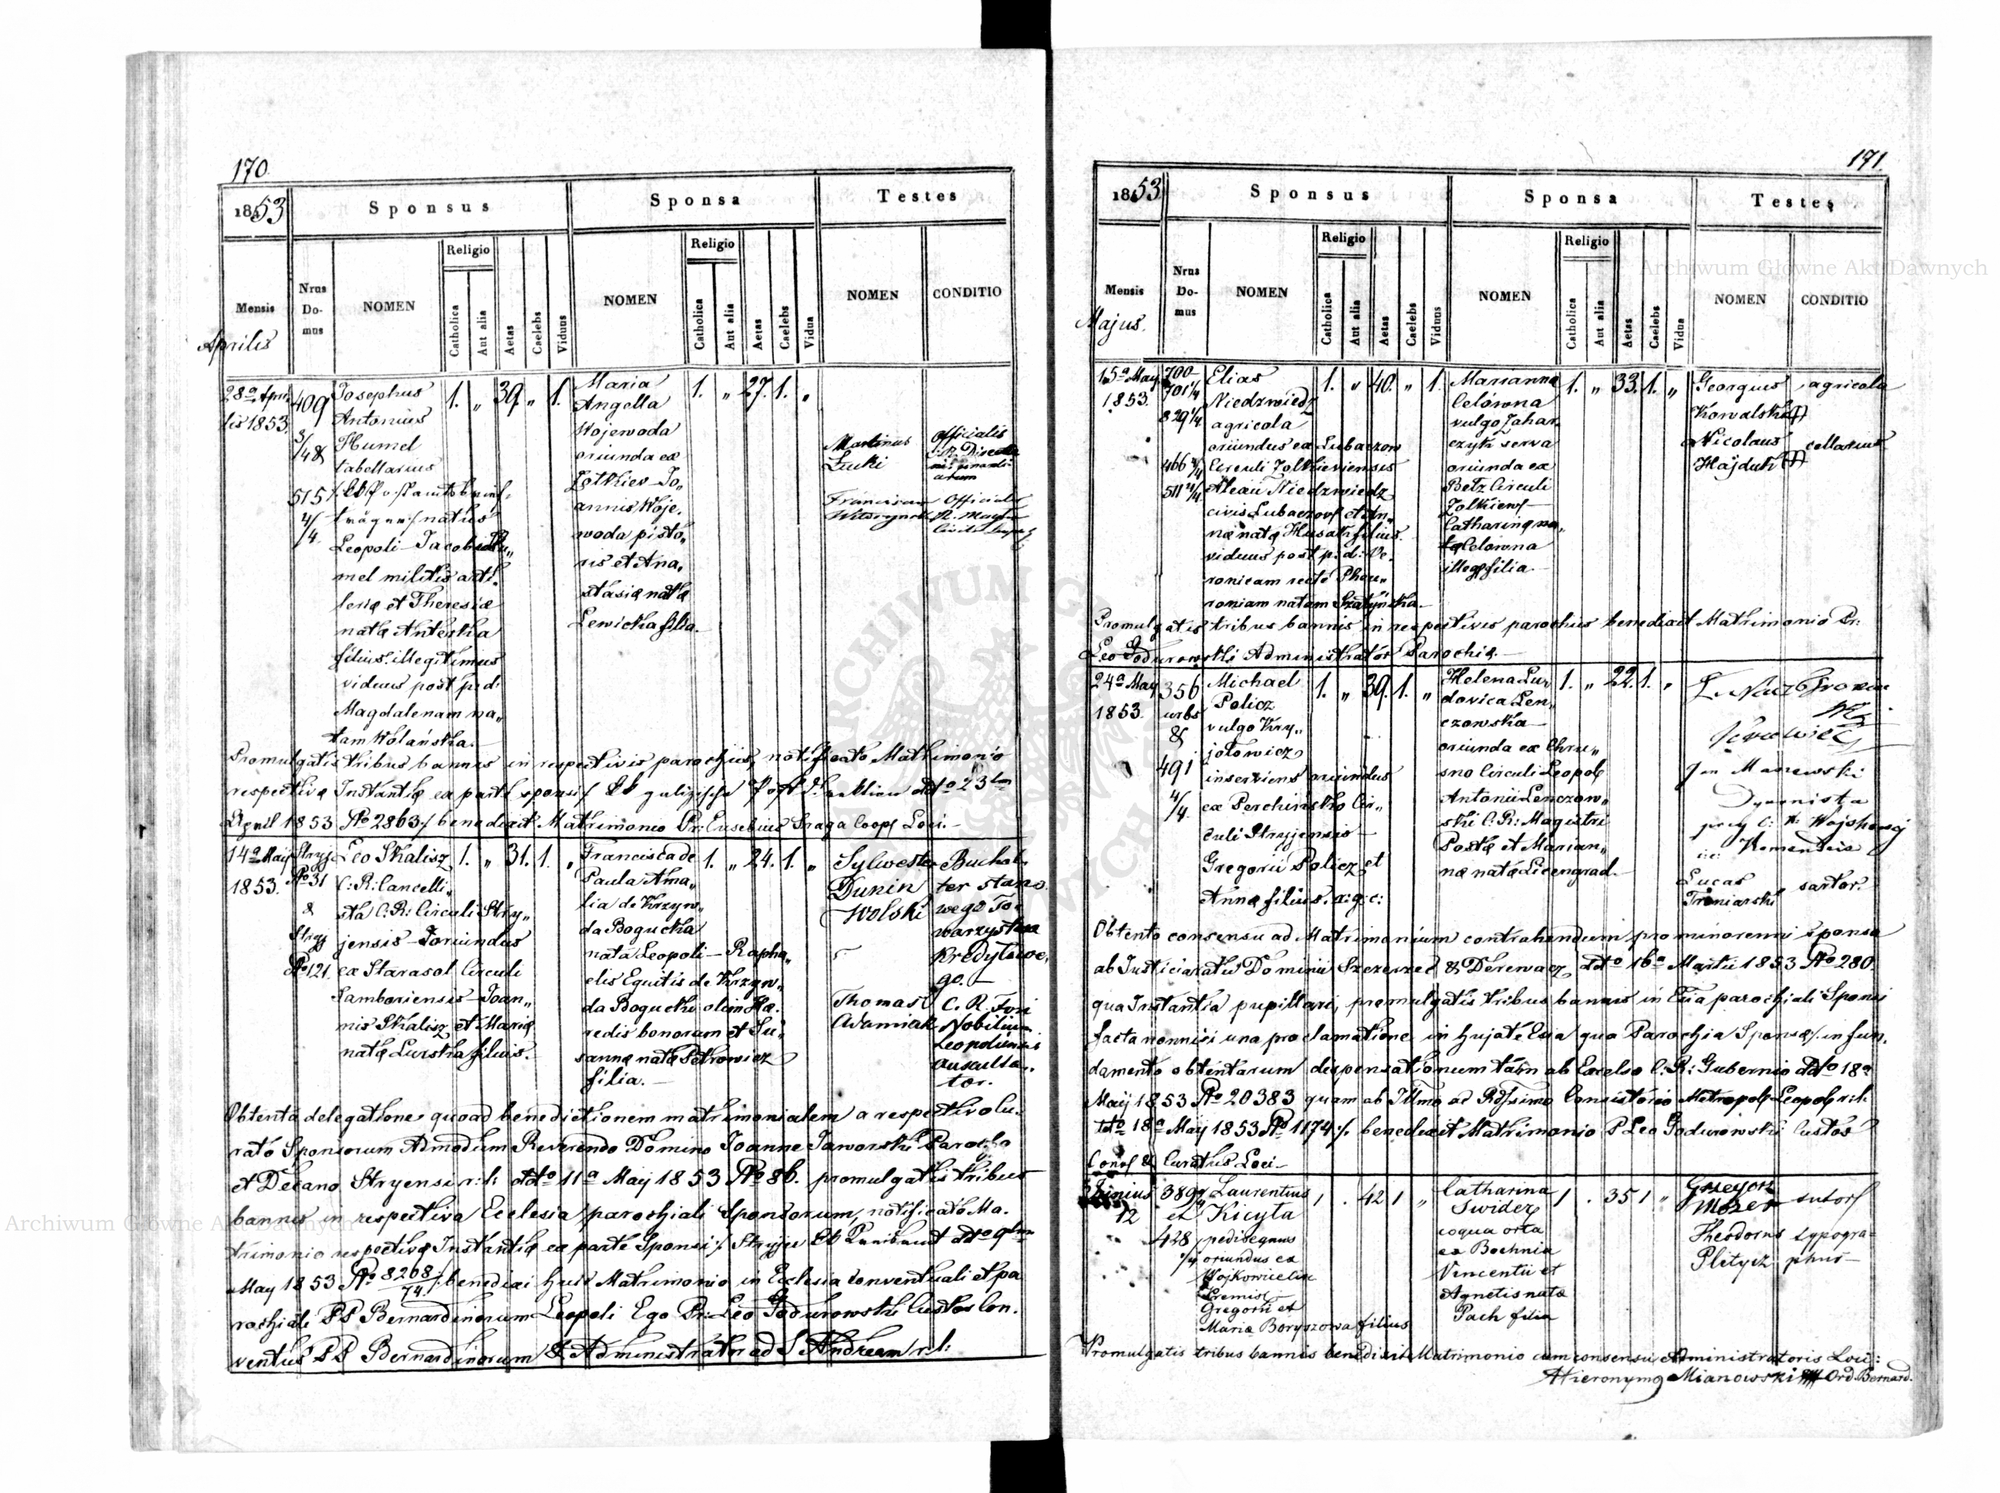 170
1853
Sponsus
Sponsa
Testes
Mensis
Aprilis
Nrus Do- mus
NOMEN
Religio
Catholica
Aut alia
Aetas
Caelebs
Viduus
NOMEN
Religio
Catholica
Aut alia
Aetas
Caelebs
Vidua
NOMEN
CONDITIO
28a Apri
lis 1853.
409
3/4 &
515
4/4
Josephus
Antonius
Humel
tabellarius
natus
Leopoli Jacobi Hu„
mel militis arti„
leriæ et Theresiæ
natæ Anteska
filius illegitimus
viduus post p: d:
Magdalenam na„
tam Wolańska.
1. „ 39. „ 1.
Maria
Angella
Wojewoda
oriunda ex
Zołkiew Jo„
annis Woje„
woda pisto„
ris et Ana„
stasiæ natæ
Lewicka filia.
1. „ 27. 1. „
Martinus
Łucki
Officialis
Franciscus
Official
Promulgatis tribus bannis in respectivis parochiis, notificato Matrimonio
respectivæ Instantiæ ex parte sponsi /: KK galizische Post Direktion ddto 23ten
April 1853 No 2863 :/ benedixit Matrimonio Pr: Eusebius Praga Coop Loci.
14a May
1853.
Stryj
No 31
&
Stryj
No 121.
Leo Skalisz
C: R: Cancelli„
sta C: R: Circuli Stry„
jensis oriundus
ex Starasol Circuli
Samboriensis Joan„
nis Skalisz et Mariæ
natæ Lurska filius.
1. „ 31. 1. „
Francisca de
Paula Ama„
lia de Krzyw„
da Bogucka
nata Leopoli Rapha„
elis Equitis de Krzyw„
da Bogucki olim Hæ„
redis bonorum et Su„
sannæ natæ Petrowicz
filia.
1. „ 24. 1. „
Sylwester
Dunin
Wolski
Buchal
ter stano
wego To„
warzystwa
Kredytowe„
go.
Thomas
Adamiak
C. R. Fori
Nobilium
Leopoliensis
Ausculta„
tor.
Obtenta delegatione quoad benedictionem matrimonialem a respectivo Cu„
rato Sponsorum Admodum Reverendo Domino Joanne Jaworski Parocho
et Decano Stryensi r: l: ddto 11a May 1853 No 86. promulgatis tribus
bannis in respectiva Ecclesia parochiali Sponsorum, notificato Ma„
trimonio respectivæ Instantiæ ex parte Sponsi /: Stryjer KK Kreisamt ddto 9ten
May 1853 No 8268/741 :/ benedixi huic Matrimonio in Ecclesia conventuali et pa
rochiali PP Bernardinorum Leopoli Ego Pr: Leo Godurowski Custos Con„
ventus PP Bernardinorum & Administrator ad S Andream r: l:
171.
1853
Sponsus
Sponsa
Testes
Mensis
Majus.
Nrus Do- mus
NOMEN
Religio
Catholica
Aut alia
Aetas
Caelebs
Viduus
NOMEN
Religio
Catholica
Aut alia
Aetas
Caelebs
Vidua
NOMEN
CONDITIO
15a May
1853.
700
701 1/4
829 1/4
466 2/4
511 4/4
Elias
Niedzwiedz
agricola
oriundus ex Lubaczow
Circuli Zolkieviensis
Niedzwiedz
civis Lubaczow et An„
næ natæ Husak filius.
viduus post p: d: Ve„
ronicam recte Phero„
niam natam
1. „ 40. „ 1.
Marianna
Celowna
vulgo Zahar„
czyk serva
oriunda ex
Betz Circuli
Zolkiew
Catharinæ na„
tæ Celowna
illeg: filia.
1. „ 33. 1. „
Georgius
Kowalski
agricola
Nicolaus
Hajduk
cellarius
Promulgatis tribus bannis in respectivis parochiis benedixit Matrimonio Pr:
Leo Godurowski Administrator Parochiæ.
24a May
1853.
356
urbs
&
491
4/4
Michael
Policz
vulgo Kry„
jolowicz
inserviens oriundus
ex Perehinsko Cir„
culi Stryjensis
Gregorii Policz et
Annæ filius. r: g: c:
1. „ 39. 1. „
Helena Lu„
dovica Len„
czowska
oriunda ex Chru„
sno Circuli Leopol
Antonii Lenczow„
ski C. R: Magistri
Postæ et Marian„
næ natæ Licengrad.
1. „ 22. 1. „
Jan Manewski
Dyurnista
przy C: K: Wojskowej
Komendzie
Lucas
Froniarski
sartor.
Obtento consensu ad Matrimonium contrahendum pro minorenni sponsa
ab Justiciariatu Dominii Szczerzec & Derewacz ddto 16a Martii 1853 No 280.
qua Instantia pupillari, promulgatis tribus bannis in Ecclia parochiali Sponsi
facta nonnisi una proclamatione in hujate Ecla qua Parochia Sponsæ /: in fun„
damento obtentarum dispensationum tam ab Excelso C: R: Gubernio ddto 18a
May 1853 No 20383 quam ab Illmo ac Rdssimo Consistorio Metropol: Leopol: r: l:
ddto 18a May 1853 No 1174 :/ benedixit Matrimonio P. Leo Godurowski Custos
Conv & Curatus Loci
Junius
12
389
et
428
Laurentius
Kicyta
pedisequus
oriundus ex
Wojkowice
Premisl
Gregorii et
Mariæ Boryszowa filius
1 . 42 1 „
Catharina
Swider
coqua orta
ex Bochnia
Vincentii et
Agnetis nata
Pach filia
1 . 35 1 „
Grzegorz
Mozer
sutor
Theodorus
Plitycz
typogra=
phus
Promulgatis tribus bannis benedixit Matrimonio cum consensu Administratoris Loci:
Hieronymg Mianowski Ord Bernard.
Archiwum Główne Akt Dawnych
Archiwum Główne Akt Dawnych